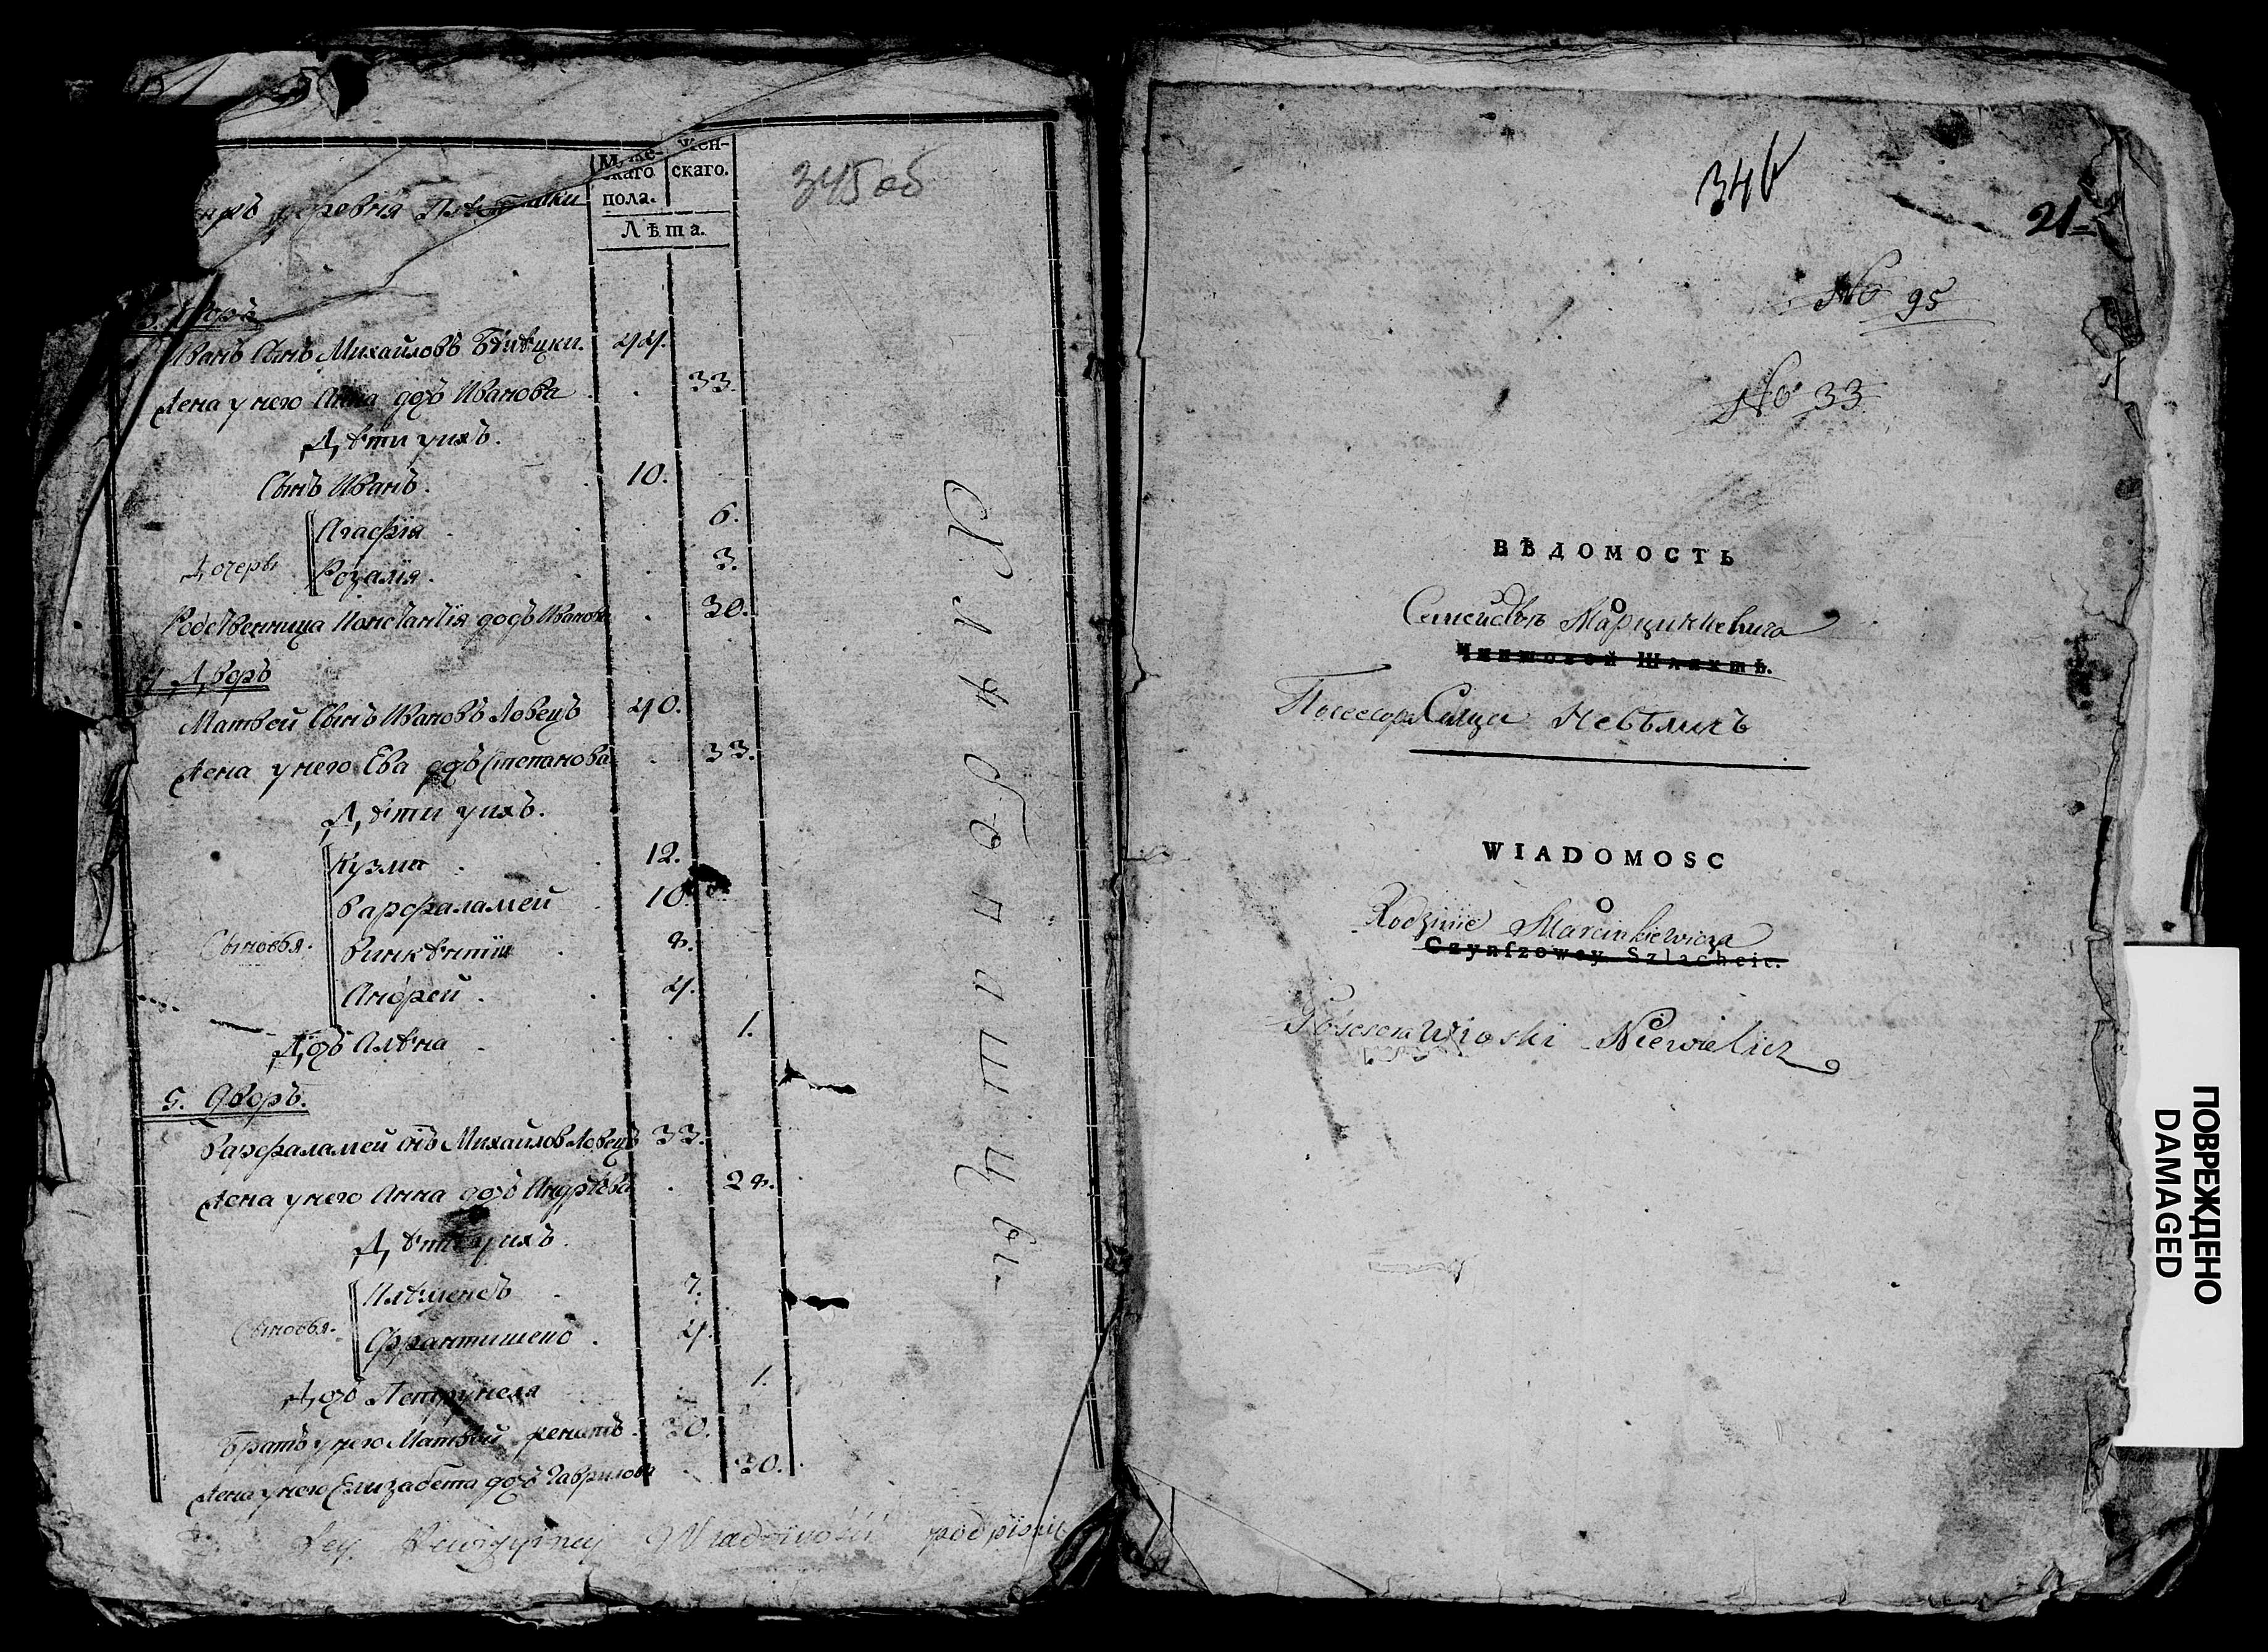 345 об
деревня
Мужескаго пола. | Женскаго.
Лѣта.
3. Дворъ
Иванъ Сынъ Михайловъ 44.
Жена у него Анна дочь Иванова 33.
Дѣти у ихъ.
Сынъ Иванъ. 10.
Агафія 6.
Дочеры
Розалія. 3.
Родственница Констанція дочь Иванова 30.
4 Дворъ
Матвей Сынъ Ивановъ Ловецъ 40.
Жена у него Ева дочь Степанова 33.
Дѣти у ихъ.
Кузма 12.
Варфаламей 10.
Сыновья. Винкѣнтій 8.
Андрей. 4.
Дочь Алѣна 1.
5. Дворъ.
Варфаламей сынъ Михайлов Ловецъ 33.
Жена у него Анна дочь Андрѣева 28.
Дѣти у ихъ.
Клѣменсъ 7.
Сыновья.
Франтишекъ. 4.
Дочь Петрунеля 1.
Братъ у него Матвѣй женатъ. 30.
Жена у него Елизабета дочь Гаврилова 30.
Wiadomości podpisuię
346
21
No 95
No 33
ВѢДОМОСТЬ
О
Семействѣ Марцинкевича
Чиншовой Шляхтѣ.
Посессора Сельца Невѣличъ
WIADOMOSC
O
Rodzinie Marcinkiewicza
Czynszowey Szlachcie.
Posesora Wioski Niewielicz
ПОВРЕЖДЕНО
DAMAGED